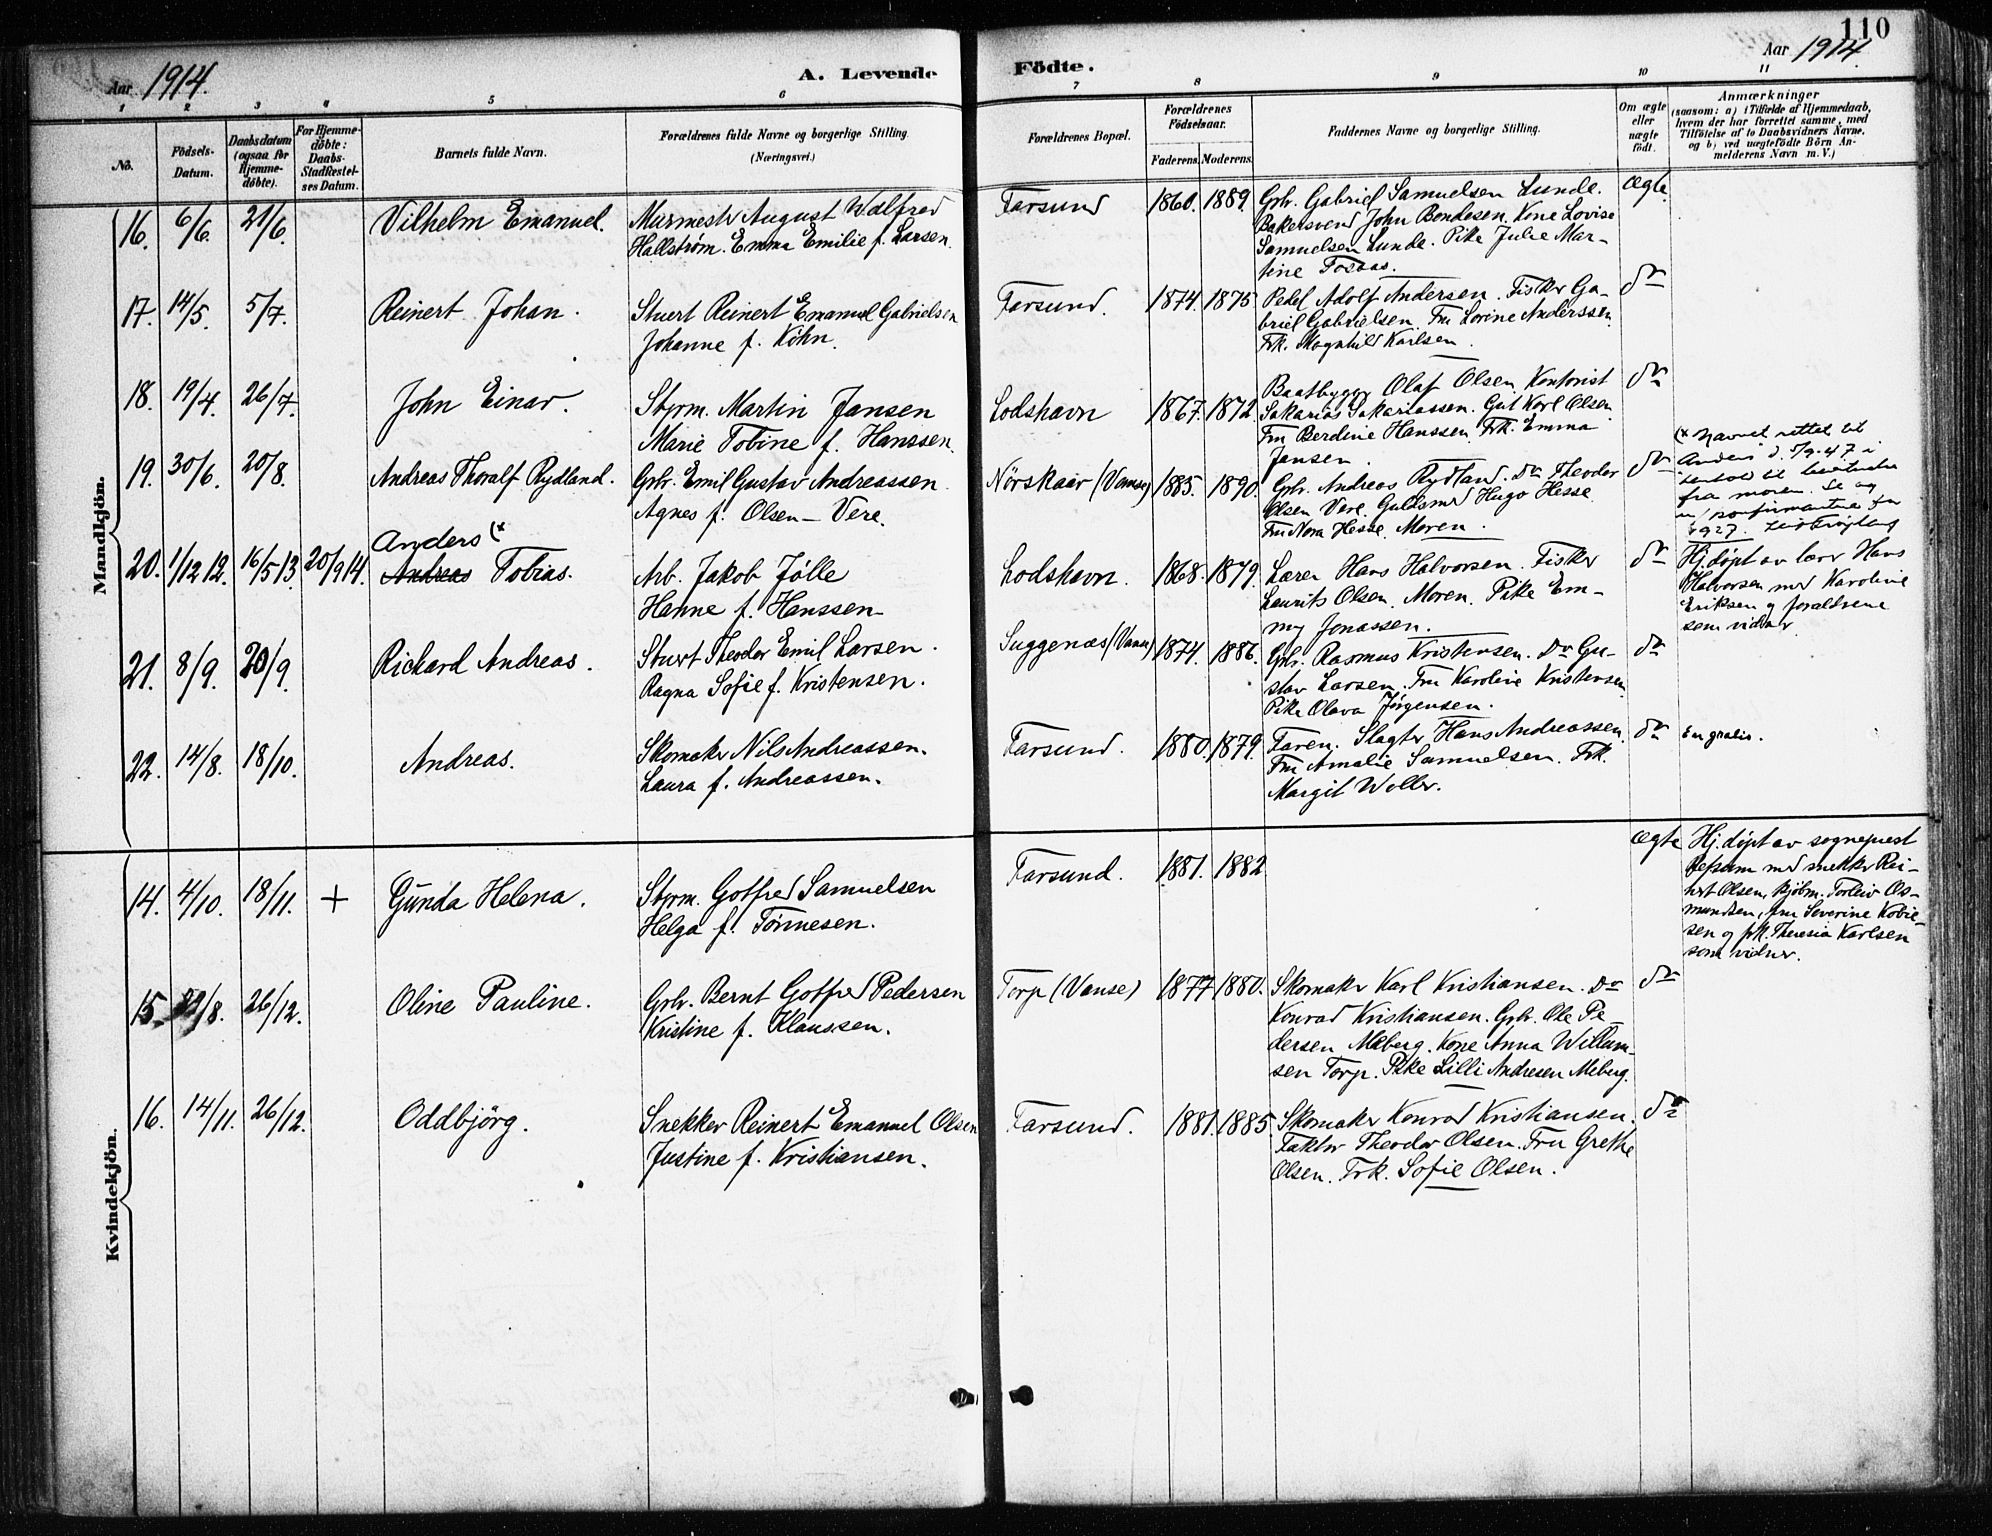 110
Aar 1914.
A. Levende
Födte.
Aar 1914.
1 2 3 4 5 6 7 8 9 10 11
No.
Födsels-
Datum.
Daabsdatum
(ogsaa for
Hjemme-
döbte).
For Hjemme-
döbte:
Daabs-
Stadfæstel-
ses Datum.
Barnets fulde Navn.
Forældrenes fulde Navne og borgerlige Stilling
(Næringsvei.)
Forældrenes Bopæl.
Forældrenes
Födselsaar.
Faderens. Moderens.
Faddernes Navne og borgerlige Stilling.
Om ægte
eller
uægte
födt.
Anmærkninger
(saasom: a) i Tilfælde af Hjemmedaab,
hvem der har forrettet samme, med
Tilföielse af to Daabsvidners Navne.
og b) ved uægtefödte Börn An-
melderens Navn m. V.)
Mandkjön.
16. 6/6. 21/6. Vilhelm Emanuel. Murmestr August Walfred
Hallstrøm. Emma Emilie f. Larsen.
Farsund 1860. 1889. Grbr. Gabriel Samuelsen Lunde.
Bakersvend John Bendesen. Kone Lovise
Samuelsen Lunde. Pike Julie Mar-
tine Fosaas.
Ægte.
17. 14/5. 5/7. Reinert Johan. Stuert Reinert Emanuel Gabrielsen
Johanne f. Köhn.
Farsund. 1874. 1875 Pedel Adolf Andersen. Fisker Ga-
briel Gabrielsen. Fru Lovine Anderssen.
Frk. Magnhild Karlsen.
do
18. 19/4. 26/7. John Einar. Styrm. Martin Jansen
Marie Tobine f. Hanssen.
Lodshavn 1867. 1872. Baatbygger Olaf Olsen. Kontorist
Sakarias Sakariassen. Gut Karl Olsen.
Fru Berdine Hanssen. Frk. Emma
Jansen.
do
19. 30/6. 20/8. Andreas Thoralf Rydland. Grbr. Emil Gustav Andreassen
Agnes f. Olsen-Vere.
Nørskaar (Vanse) 1885. 1890. Grbr. Andreas Rydland. Do Theodor
Olsen Vere. Guldsmed Hugo Hesse.
Fru Nora Hesse. Moren.
do
(* Navnet rettet til
Anders d. 5/9-47 i
henhold til
fra moren. Se og
konfirmantene for
1927.
20. 1/12 12. 16/5 13. 20/9 14. Anders (*
Andreas Tobias. Arb. Jakob Jölle
Hanne f. Hanssen
Lodshavn. 1868. 1879. Lærer Hans Halvorsen. Fisker
Laurits Olsen. Moren. Pike Em-
my Jonassen.
do
Hj. døpt av lærer Hans
Halvorsen med Karoline
Eriksen og forældrene
som vidner
21. 8/9. 20/9. Richard Andreas. Stuert Theodor Emil Larsen.
Ragna Sofie f. Kristensen.
Suggenæs (Vanse) 1874. 1886. Grbr. Rasmus Kristensen. Do Gu-
stav Larsen. Fru Karoline Kristensen
Pike Olava Jørgensen.
do
22. 14/8. 18/10. Andreas. Skomaker Nils Andreassen.
Laura f. Andreassen.
Farsund. 1880. 1879. Faren. Slagter Hans Andreassen.
Fru Amalie Samuelsen. Frk.
Margit Weller.
do
Em gratis.
Kvindekjön.
14. 4/10. 18/11. + Gunda Helena. Styrm. Gotfred Samuelsen
Helga f. Tønnesen.
Farsund. 1881. 1882.
Ægte
Hj. døpt av sogneprest
Refsum med snekker Rei-
nert Olsen, Bjöbm. Torleiv Os-
mundsen, fru Severine Kobie-
sen og frk. Theresia Karlsen
som vidner.
15. 22/8. 26/12. Oline Pauline. Grbr. Bernt Gotfred Pedersen
Kristine f. Klaussen.
Torp (Vanse) 1877. 1880. Skomaker Karl Kristiansen. Do
Konrad Kristiansen. Grbr. Ole Pe-
dersen Meberg. Kone Anna Willum-
sen Torp. Pike Lilli Andresen Meberg.
do
16. 14/11. 26/12. Oddbjörg. Snekker Reinert Emanuel Olsen
Justine f. Kristiansen.
Farsund. 1881. 1885. Skomaker Konrad Kristiansen.
Faktor Theodor Olsen. Fru Grethe
Olsen. Frk. Sofie Olsen.
do